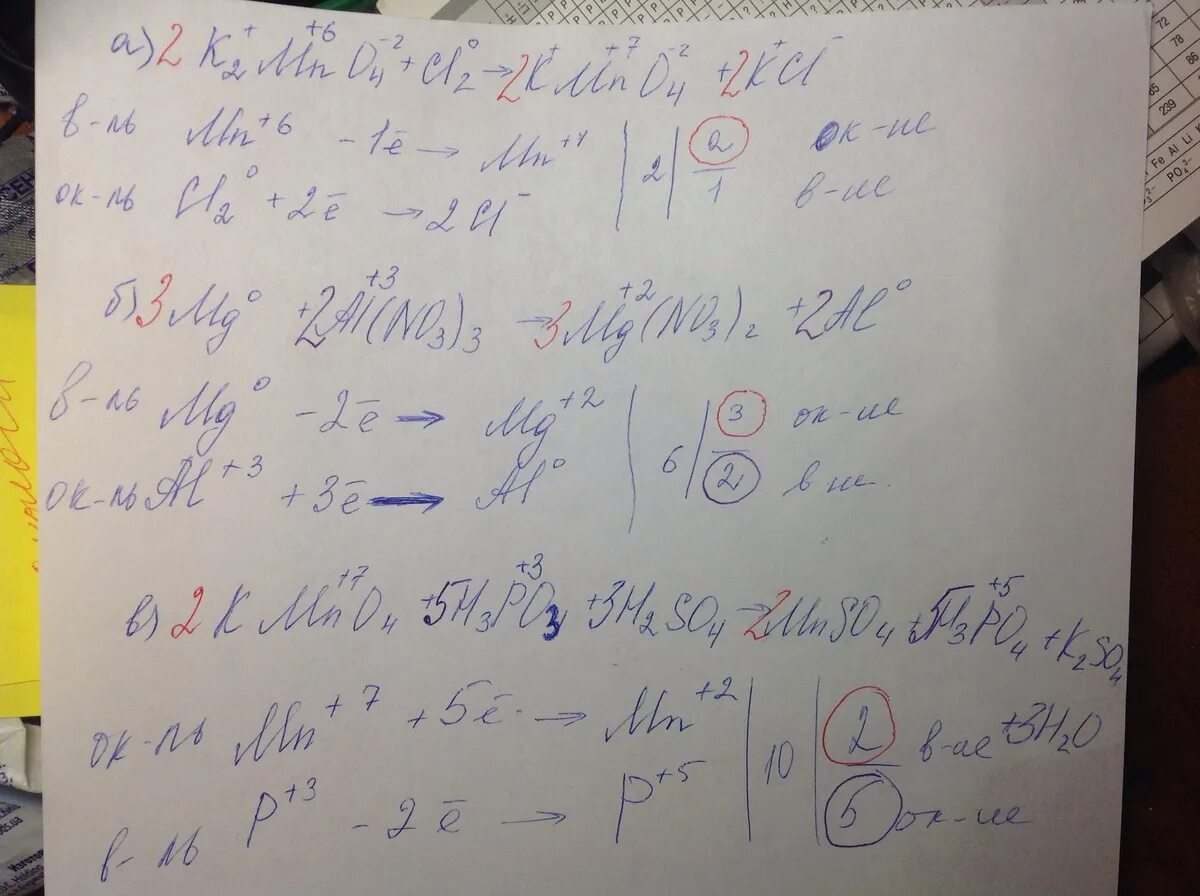 а) 2 K₂⁺Mn⁺⁶O₄⁻² + Cl₂⁰ → 2K⁺Mn⁺⁷O₄⁻² + 2K⁺Cl⁻
в-ль Mn⁺⁶ - 1ē → Mn⁺⁷ | 2 | 2 ок-ие
ок-ль Cl₂⁰ + 2ē → 2Cl⁻ | 1 в-ие
б) 3Mg⁰ + 2Al⁺³(NO₃)₃ → 3Mg⁺²(NO₃)₂ + 2Al⁰
в-ль Mg⁰ - 2ē → Mg⁺² | 6 | 3 ок-ие
ок-ль Al⁺³ + 3ē → Al⁰ | 2 в ие.
в) 2 K Mn⁺⁷O₄ + 5H₃P⁺³O₃ + 3H₂SO₄ → 2MnSO₄ + 5H₃P⁺⁵O₄ + K₂SO₄
ок-ль Mn⁺⁷ + 5ē → Mn⁺² | 10 | 2 в-ие + 3H₂O
в-ль P⁺³ - 2ē → P⁺⁵ | 5 ок-ие
72
78
86
85
239
Fe Al Li
PO₄³⁻